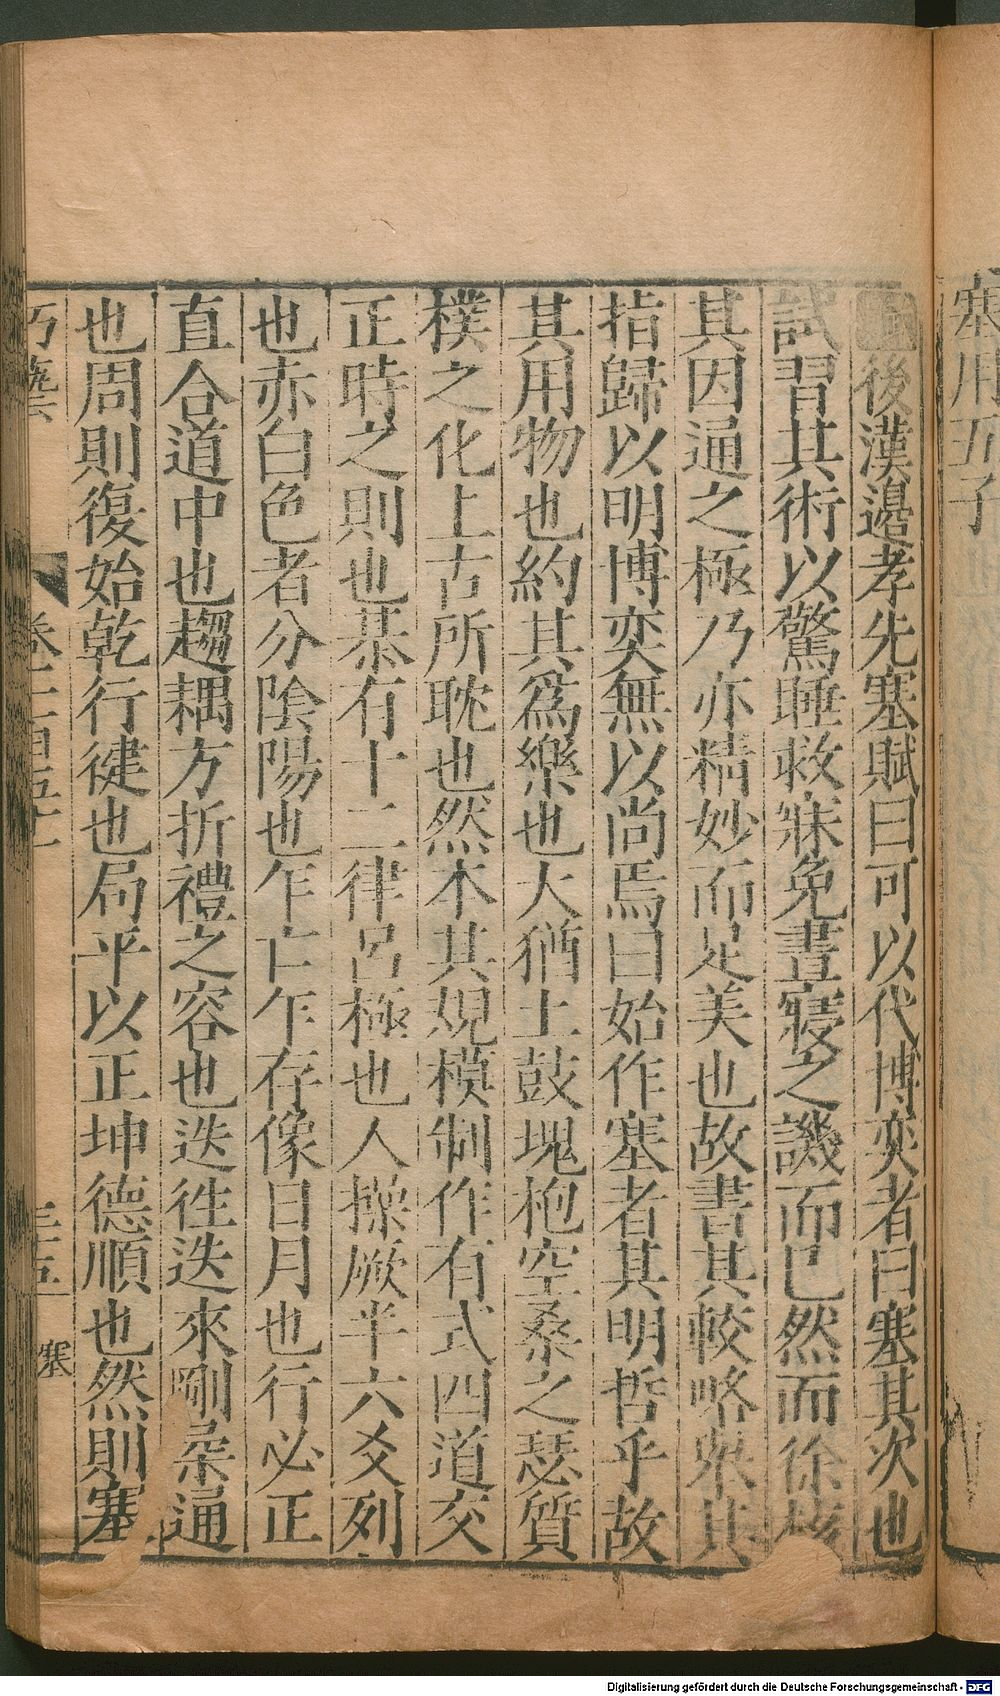 塞用五子
賦後漢邊孝先塞賦曰可以代博奕者曰塞其次也
試習其術以驚睡救寐免晝寢之譏而已然而徐核
其因通之極乃亦精妙而足美也故書其較略舉其
指歸以明博奕無以尚焉曰始作塞者其明哲乎故
其用物也約其爲樂也大猶土鼓塊枹空桑之瑟質
樸之化上古所耽也然本其規模制作有式四道交
正時之則也棊有十二律呂極也人操厥半六爻列
也赤白色者分陰陽也乍亡乍存像日月也行必正
直合道中也趨耦方折禮之容也迭徃迭來剛柔通
也周則復始乾行健也局平以正坤德順也然則塞
巧藝六 卷二百五十一 三五 塞
Digitalisierung gefördert durch die Deutsche Forschungsgemeinschaft - DFG